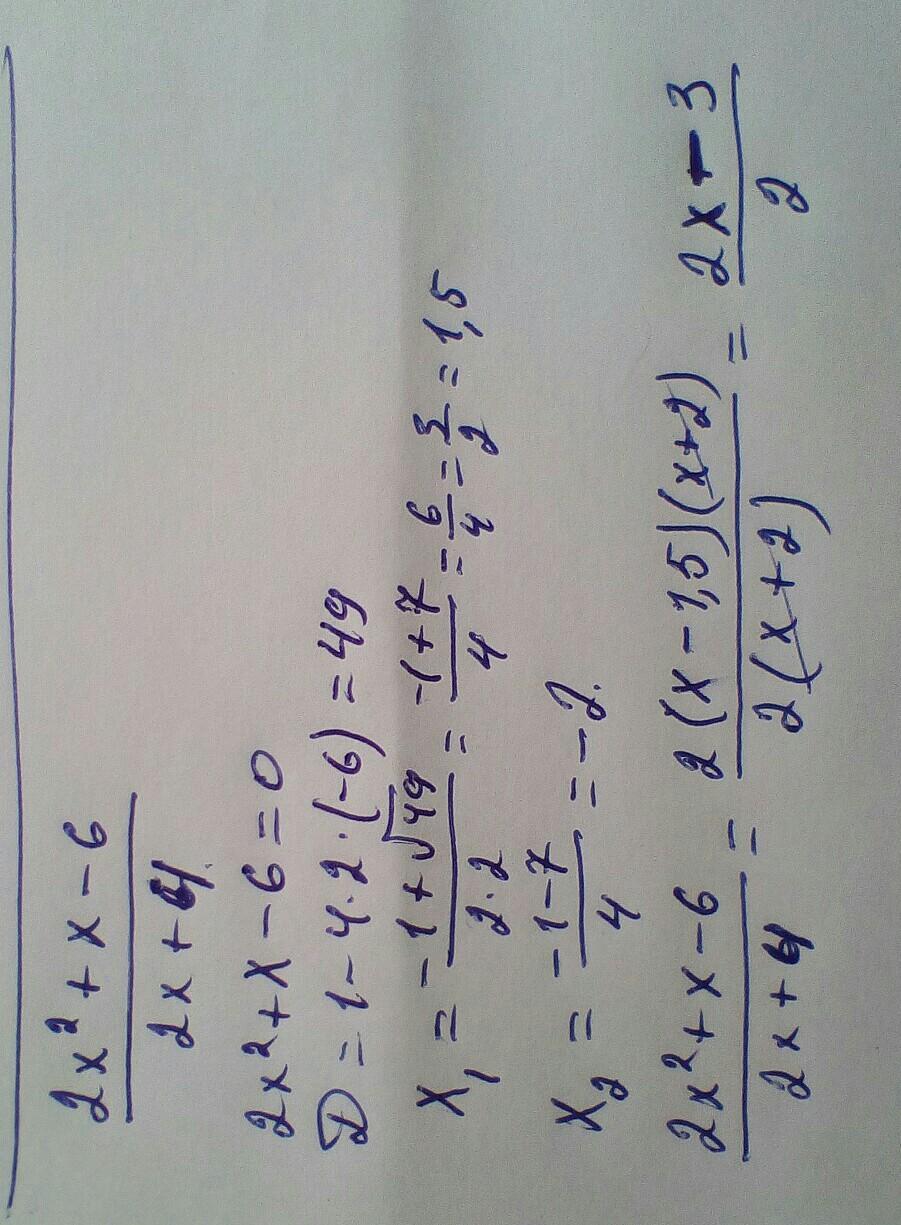 (2x² + x - 6)/(2x + 4)
2x² + x - 6 = 0
D = 1 - 4·2·(-6) = 49
x₁ = (-1 + √49)/(2·2) = (-1 + 7)/4 = 6/4 = 3/2 = 1,5
x₂ = (-1 - 7)/4 = -2.
(2x² + x - 6)/(2x + 4) = (2(x - 1,5)(x + 2))/(2(x + 2)) = (2x - 3)/2